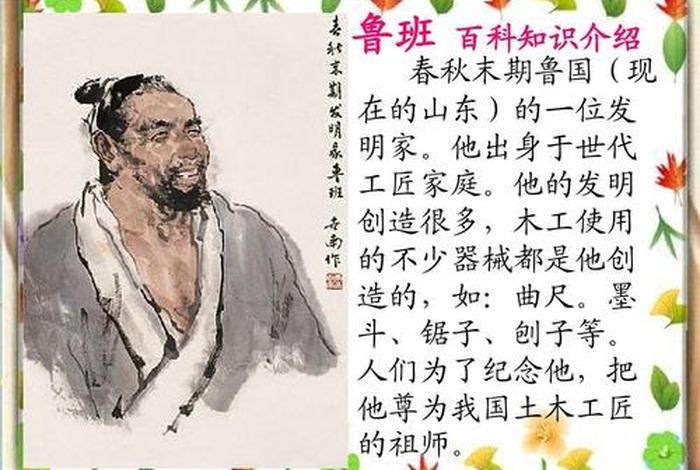 鲁班 百科知识介绍
春秋末期鲁国（现
在的山东）的一位发
明家。他出身于世代
工匠家庭。他的发明
创造很多，木工使用
的不少器械都是他创
造的，如：曲尺。墨
斗、锯子、刨子等。
人们为了纪念他，把
他尊为我国土木工匠
的祖师。
春秋末期发明家鲁班